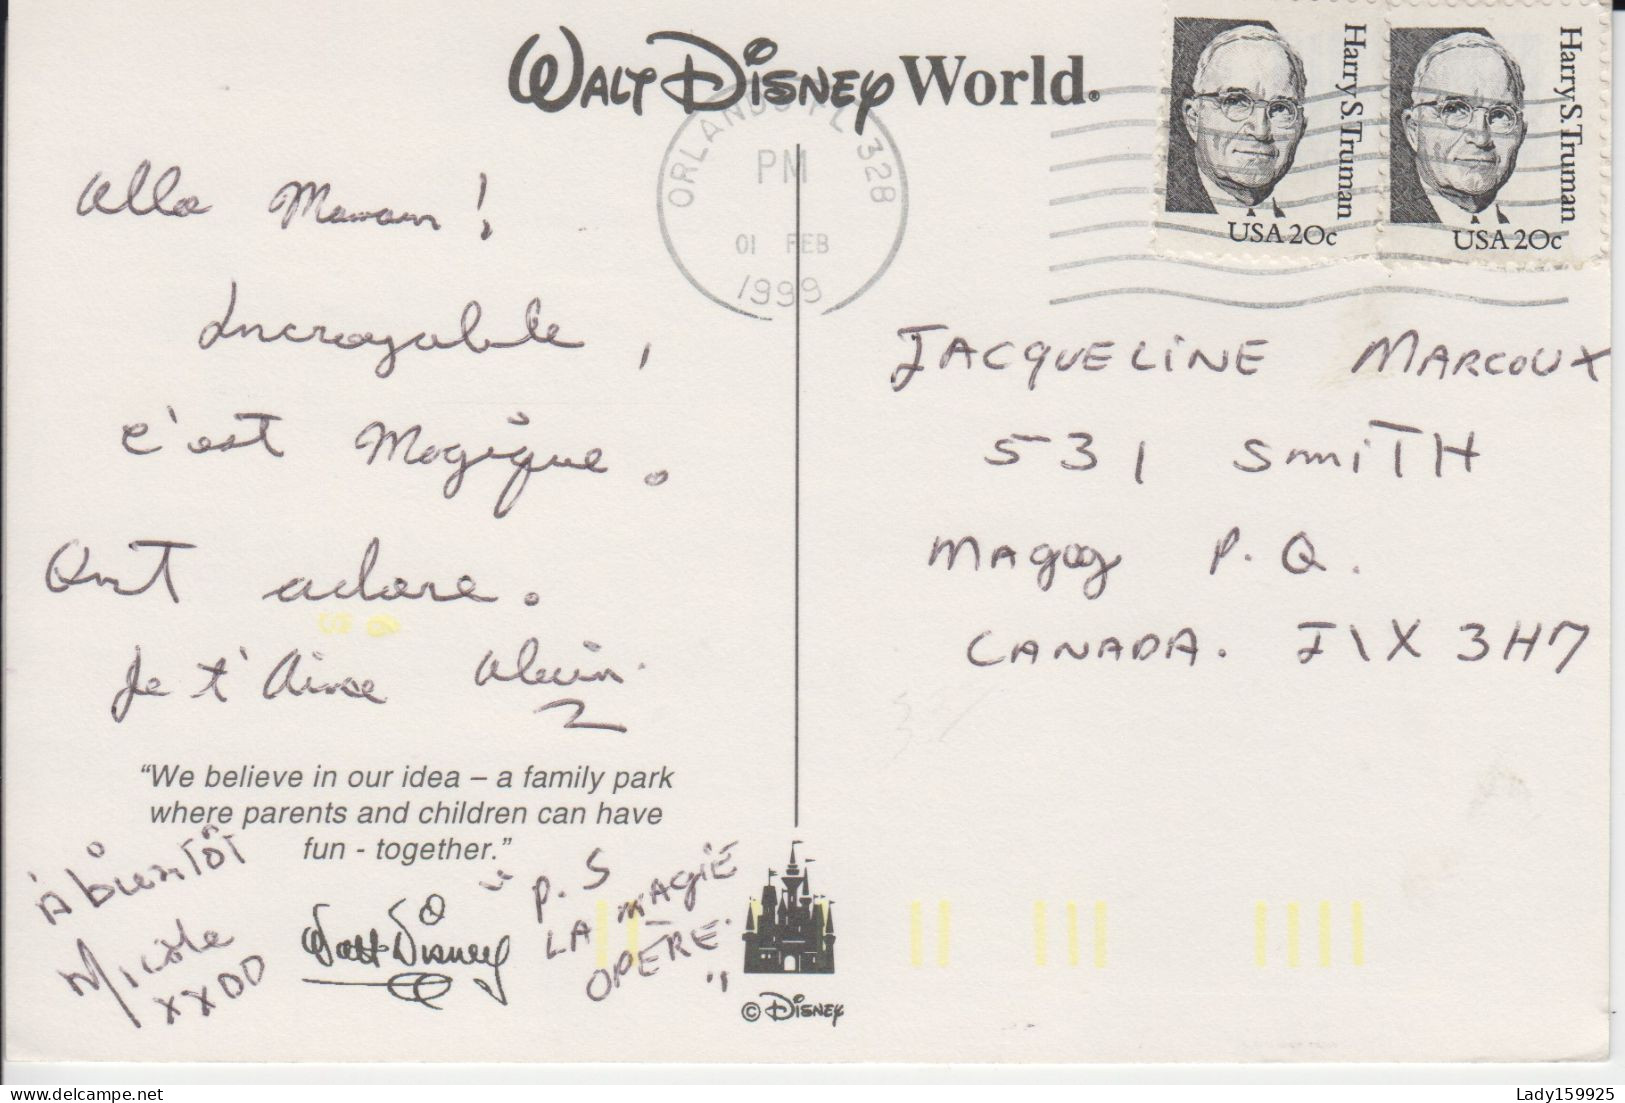 WALT DISNEY World.
ORLANDO FL 328
PM
01 FEB
1999
Harry S. Truman
USA 20c
Harry S. Truman
USA 20c
Allo Maman!
Incroyable,
c'est Magique.
Ont adore.
Je t'Aime Alain
"We believe in our idea – a family park
where parents and children can have
fun - together."
Walt Disney
À bientôt
Nicole
XXOO
P.S
"LA MAGIE
OPÈRE."
© DISNEY
JACQUELINE MARCOUX
531 SMITH
MAGOG P.Q.
CANADA. J1X 3H7
Lady159925